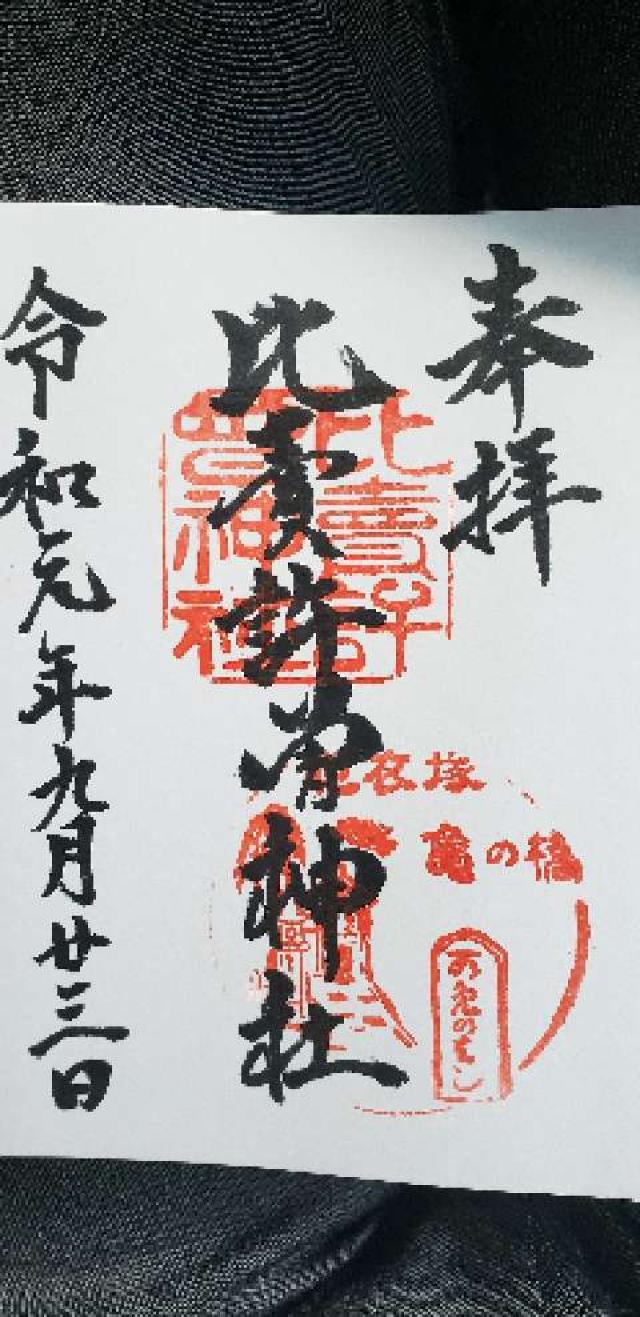 奉拝
比賣許曽神社
比賣許
曽神社
胞衣塚
亀の橋
つるのはし
令和元年九月廿三日